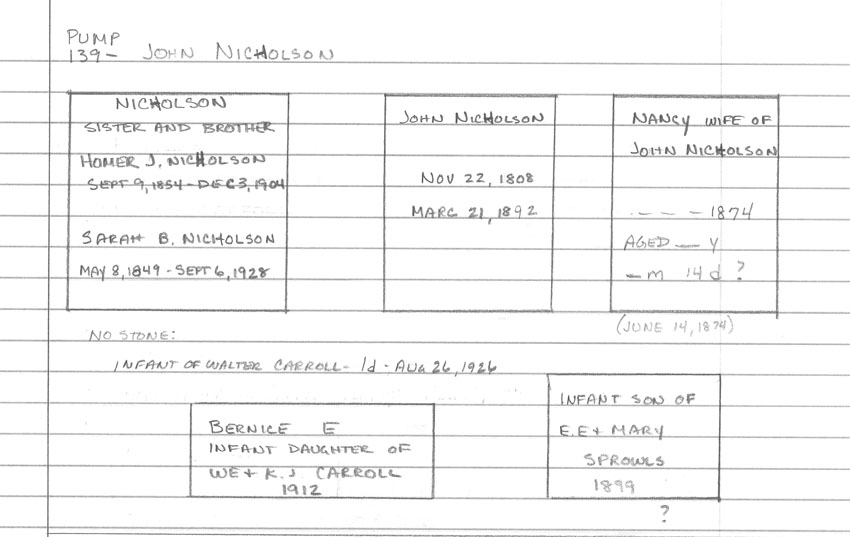 PUMP
139- JOHN NICHOLSON
NICHOLSON
SISTER AND BROTHER
HOMER J. NICHOLSON
SEPT 9, 1854 - DEC 3, 1904
SARAH B. NICHOLSON
MAY 8, 1849 - SEPT 6, 1928
JOHN NICHOLSON
NOV 22, 1808
MARC 21, 1892
NANCY WIFE OF
JOHN NICHOLSON
. — — — 1874
AGED — Y
— m 14 d ?
(JUNE 14, 1874)
NO STONE:
INFANT OF WALTER CARROLL - 1d - AUG 26, 1926
BERNICE E
INFANT DAUGHTER OF
WE + K.J. CARROLL
1912
INFANT SON OF
E.E + MARY
SPROWLS
1899
?